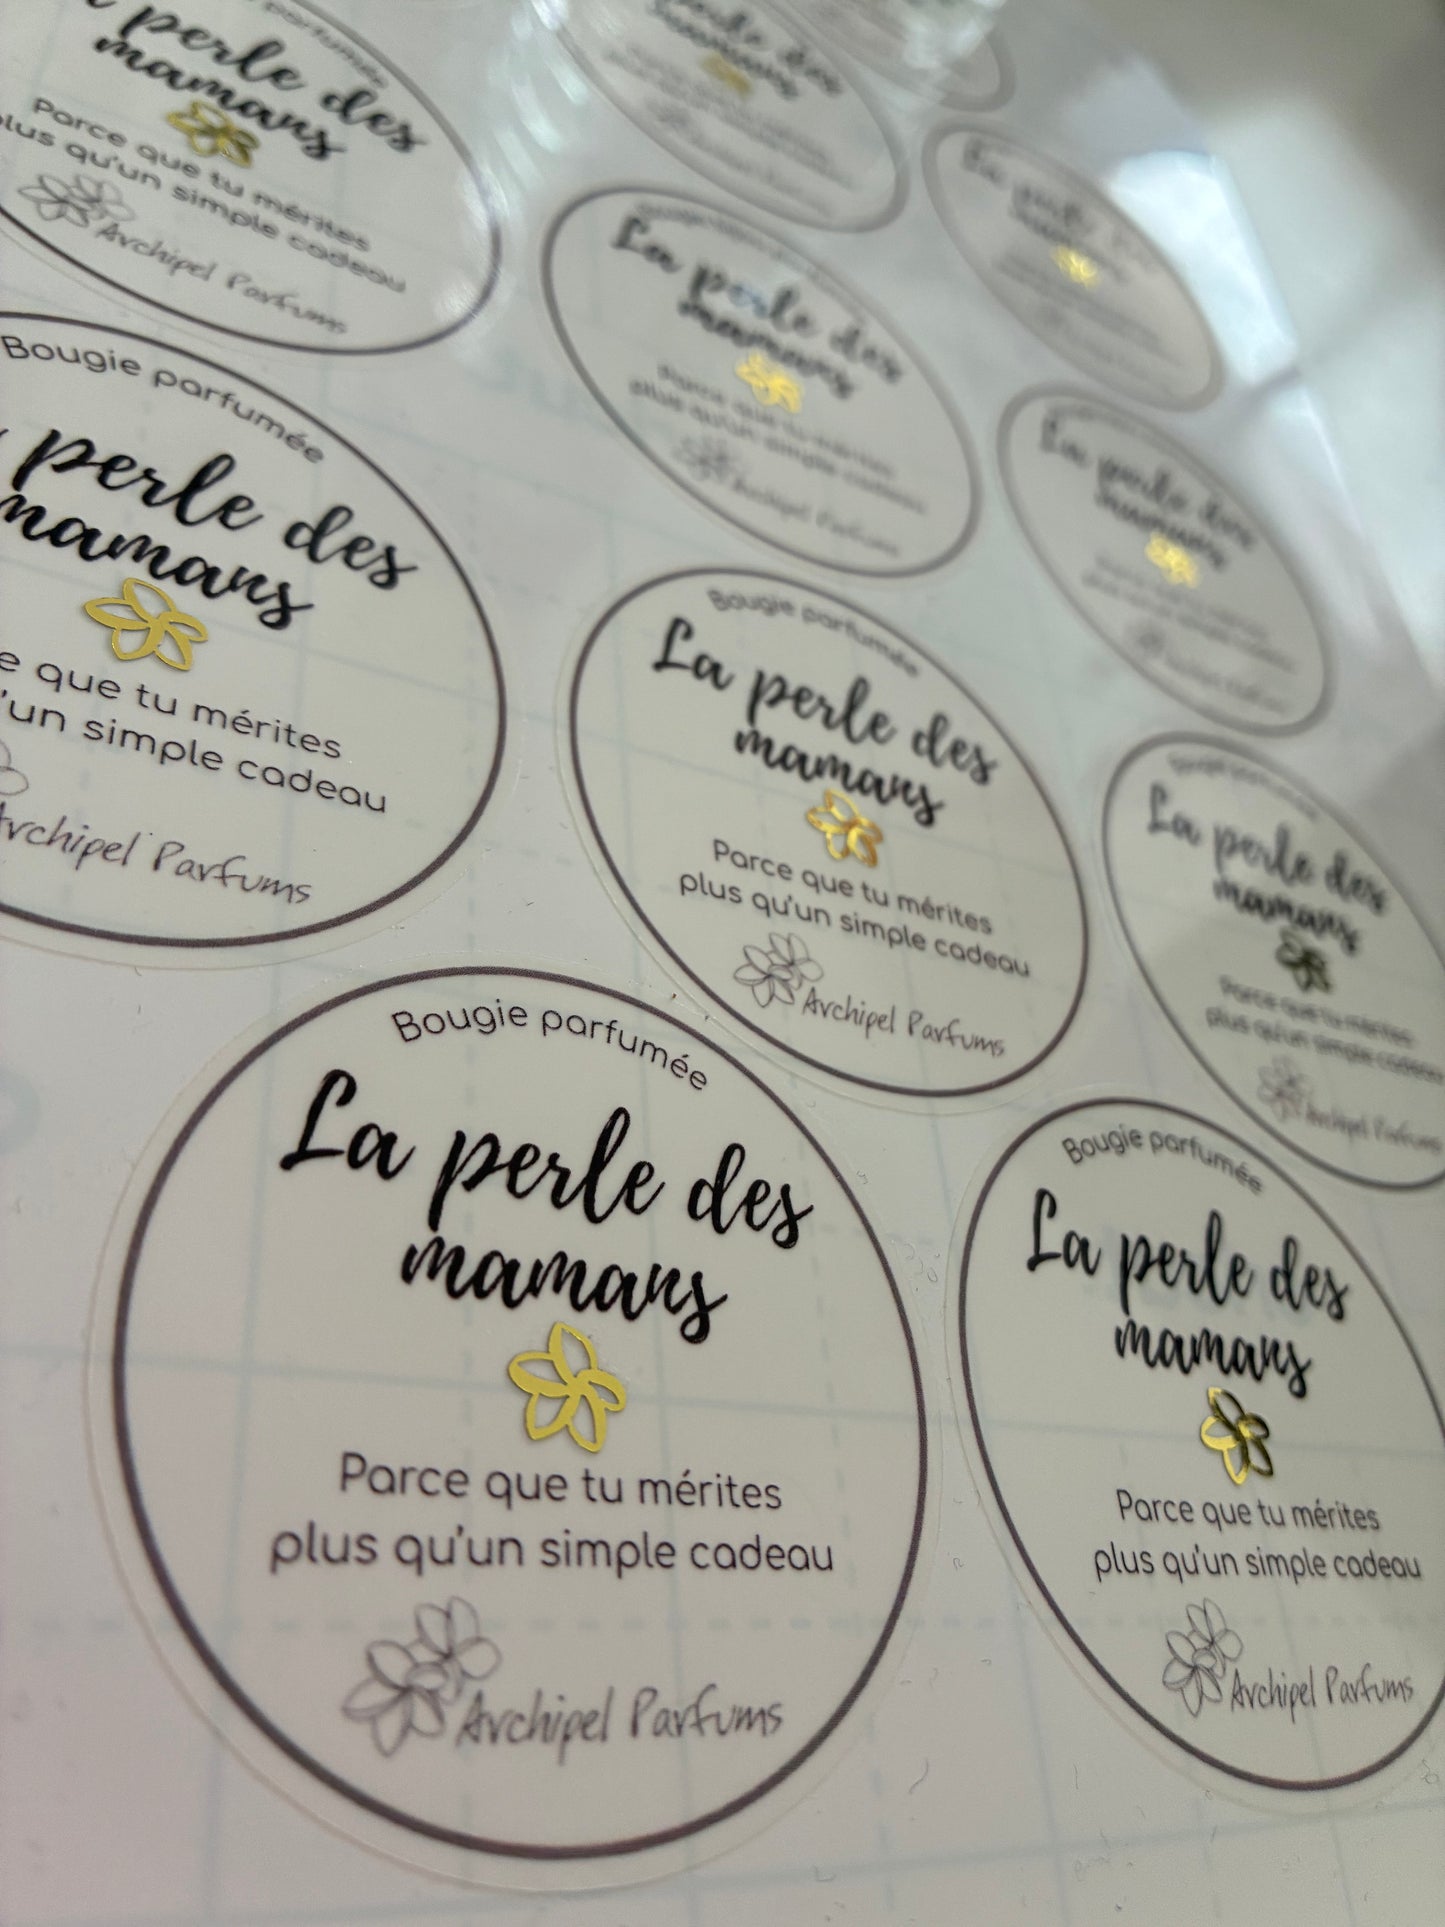 parfumée
perle des
mamans
Parce que tu mérites
plus qu'un simple cadeau
Archipel Parfums
La perle des
mamans
La perle des
mamans
Parce que tu mérites
plus qu'un simple cadeau
Archipel Parfums
Bougie parfumée
perle des
mamans
que tu mérites
qu'un simple cadeau
Archipel Parfums
La perle des
mamans
Bougie parfumée
La perle des
mamans
Parce que tu mérites
plus qu'un simple cadeau
Archipel Parfums
La perle des
mamans
Parce que tu mérites
plus qu'un simple cadeau
Archipel Parfums
Bougie parfumée
La perle des
mamans
Parce que tu mérites
plus qu'un simple cadeau
Archipel Parfums
Bougie parfumée
La perle des
mamans
Parce que tu mérites
plus qu'un simple cadeau
Archipel Parfums